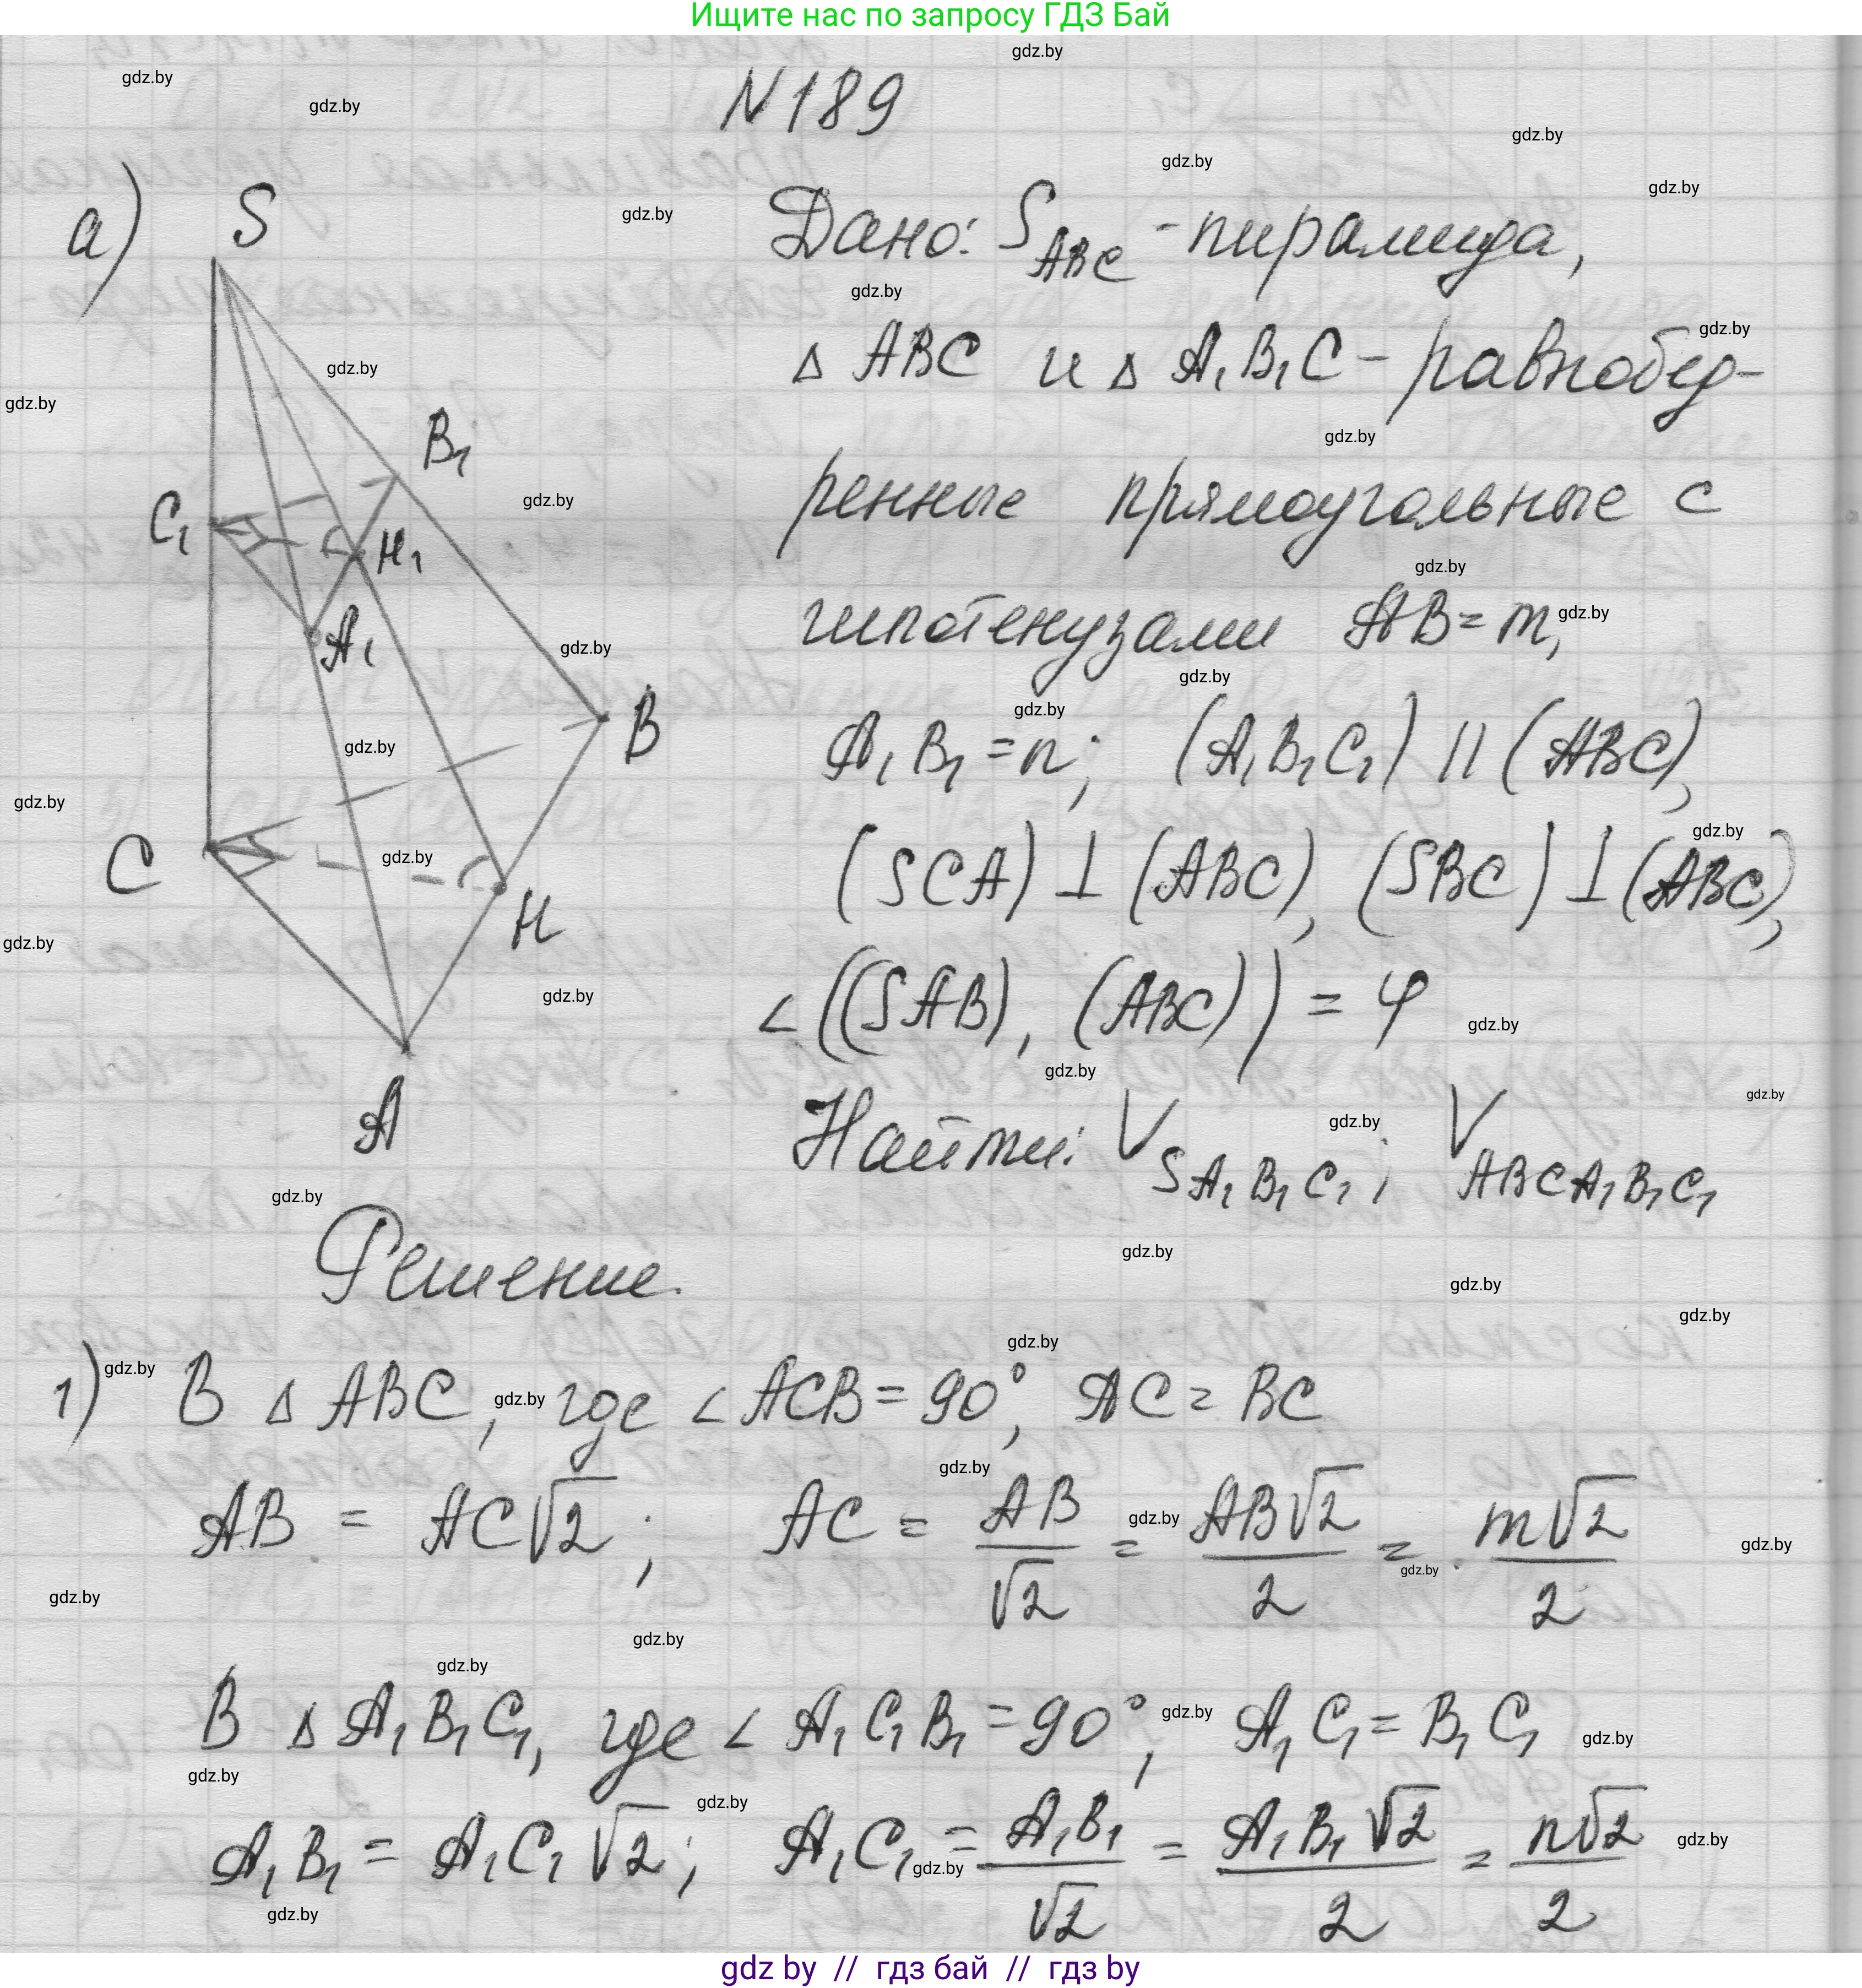 Ищите нас по запросу ГДЗ Бай
N189
а) S
Дано: S_ABC - пирамида,
Δ ABC и Δ A₁B₁C - равнобед-
ренные прямоугольные с
гипотенузами AB = m,
A₁B₁ = n; (A₁B₁C₁) || (ABC),
(SCA) ⊥ (ABC), (SBC) ⊥ (ABC),
∠((SAB), (ABC)) = φ
Найти: V_SA₁B₁C₁; V_ABCA₁B₁C₁
B₁
C₁
H₁
A₁
B
C
H
A
Решение.
1) В Δ ABC, где ∠ACB = 90°, AC = BC
AB = AC√2; AC = AB/√2 = AB√2/2 = m√2/2
В Δ A₁B₁C₁, где ∠ A₁C₁B₁ = 90°, A₁C₁ = B₁C₁
A₁B₁ = A₁C₁√2; A₁C₁ = A₁B₁/√2 = A₁B₁√2/2 = n√2/2
gdz by // гдз бай // гдз by